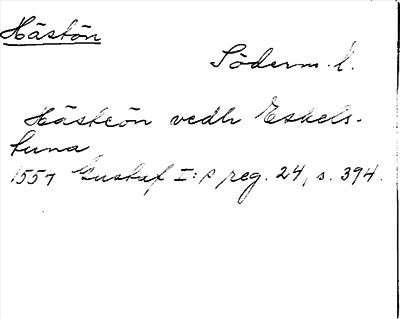 Hästön
Söderm. l.
Hästeön vedh Eskels-
tuna
1557 Gustaf I:s reg. 24, s. 394.